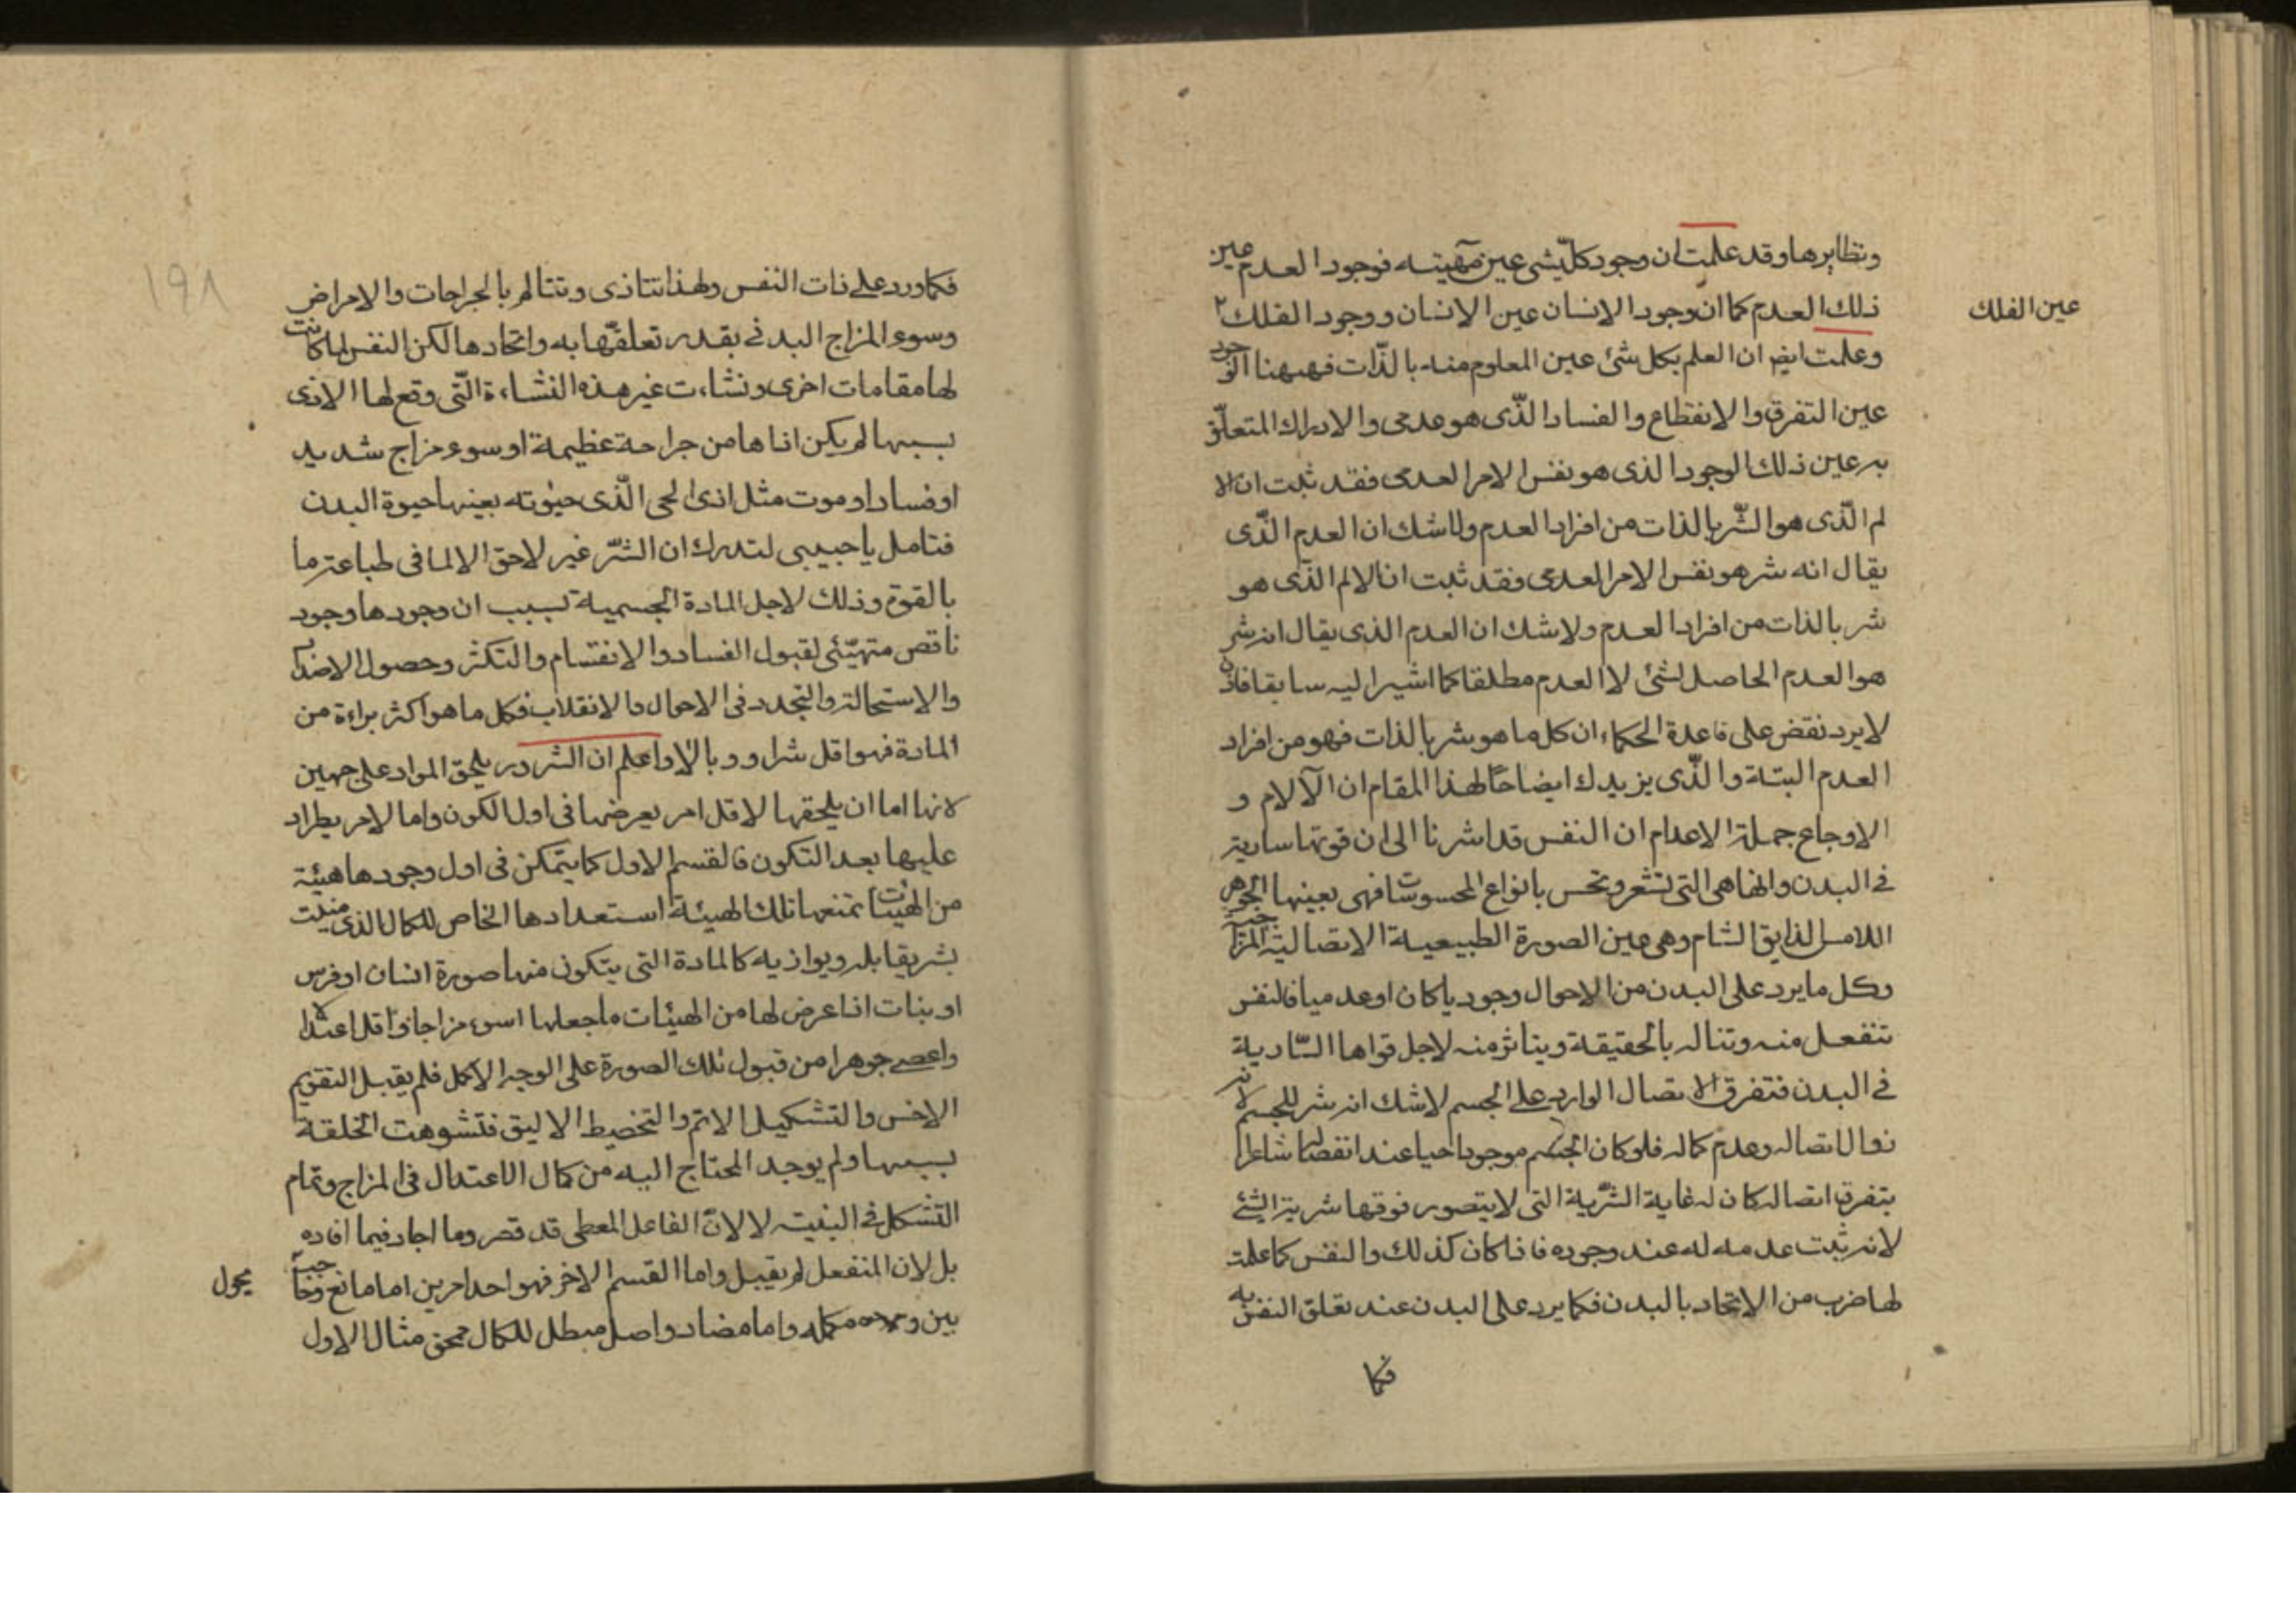 ونظايرها وقد علمت ان وجود كل شئ عين مهيته فوجود العدم عين
ذلك العدم كما ان وجود الانسان عين الانسان ووجود الفلك ٢
عين الفلك
وعلمت ايضا ان العلم بكل شئ عين المعلوم منه بالذات فههنا الوجود
عين التفرق والانقطاع والفساد الذى هو عدمى والادراك المتعلق
به عين ذلك الوجود الذى هو نفس الامر العدمى فقد ثبت ان الا
لم الذى هو الشر بالذات من افراد العدم ولا شك ان العدم الذى
يقال انه شر هو نفس الامر العدمى فقد ثبت ان الالم الذى هو
شر بالذات من افراد العدم ولا شك ان العدم الذى يقال انه شر
هو العدم الحاصل لشئ لا العدم مطلقا كما اشير اليه سابقا فاذن
لا يرد نقض على قاعدة الحكماء ان كل ما هو شر بالذات فهو من افراد
العدم البتة والذى يزيدك ايضاحا لهذا المقام ان الآلام و
الاوجاع جملة الاعدام ان النفس قد اشرنا الى ان قوتها سارية
فى البدن وانها هى التى تشعر وتحس بانواع المحسوسات فهى بعينها الجوهر
اللامس الذايق الشام وهى عين الصورة الطبيعية الاتصالية المزاجية
وكل ما يرد على البدن من الاحوال وجوديا كان او عدميا فالنفس
تنفعل منه وتناله بالحقيقة ويتاثر منه لاجل قواها السارية
فى البدن فتفرق الاتصال الوارد على الجسم لا شك انه شر للجسم لانه
زوال اتصاله وعدم كماله فلو كان الجسم موجودا حيا عند انفصاله شاعرا
بتفرق اتصاله كان له غاية الشرية التى لا يتصور فوقها شرية الشئ
لانه ثبت عدمه له عند وجوده فاذا كان كذلك والنفس كما علمت
لها ضرب من الاتحاد بالبدن فكما يرد على البدن عند تعلق النفس به
فكما
١٩٨
فكما ورد على ذات النفس ولهذا تتاذى وتتالم بالجراحات والامراض
وسوء المزاج البدنى بقدر تعلقها به واتحادها لكن النفس لما كانت
لها مقامات اخرى ونشاءت غير هذه النشاءة التى وقع لها الاذى
بسببها لم يكن اذاها من جراحة عظيمة او سوء مزاج شديد
او فساد او موت مثل اذى الحى الذى حيوته بعينها حيوة البدن
فتامل يا حبيبى لتدرك ان الشر غير لاحق الا لما فى طباعه ما
بالقوة وذلك لاجل المادة الجسمية بسبب ان وجودها وجود
ناقص متهيئ لقبول الفساد والانقسام والتكثر وحصول الاضداد
والاستحالة والتجدد فى الاحوال والانقلاب فكل ما هو اكثر براءة من
المادة فهو اقل شرا ووبالا واعلم ان الشرور يلحق المواد على جهين
لانها اما ان يلحقها لاقل امر يعرضها فى اول الكون واما لامر يطراد
عليها بعد التكون فالقسم الاول كما يتمكن فى اول وجودها هيئة
من الهيئات تمنعها تلك الهيئة استعدادها الخاص للكمال الذى منيت
بشر يقابله ويوازيه كالمادة التى يتكون منها صورة انسان او فرس
او بنات اذا عرض لها من الهيئات ما جعلها اسوء مزاجا واقل اعتدالا
واعصى جوهرا من قبول تلك الصورة على الوجه الاكمل فلم يقبل التقويم
الاخس والتشكيل الاتم والتخطيط الاليق فتشوهت الخلقة
بسببها ولم يوجد المحتاج اليه من كمال الاعتدال فى المزاج وتمام
التشكل فى البنية لا لان الفاعل المعطى قد قصر وما اجاد فيما افاده
بل لان المنفعل لم يقبل واما القسم الاخر فهو احد امرين اما مانع خارجى
يحول
بين و مكمله واما مضاد واصل مبطل للكمال ممحق مثال الاول